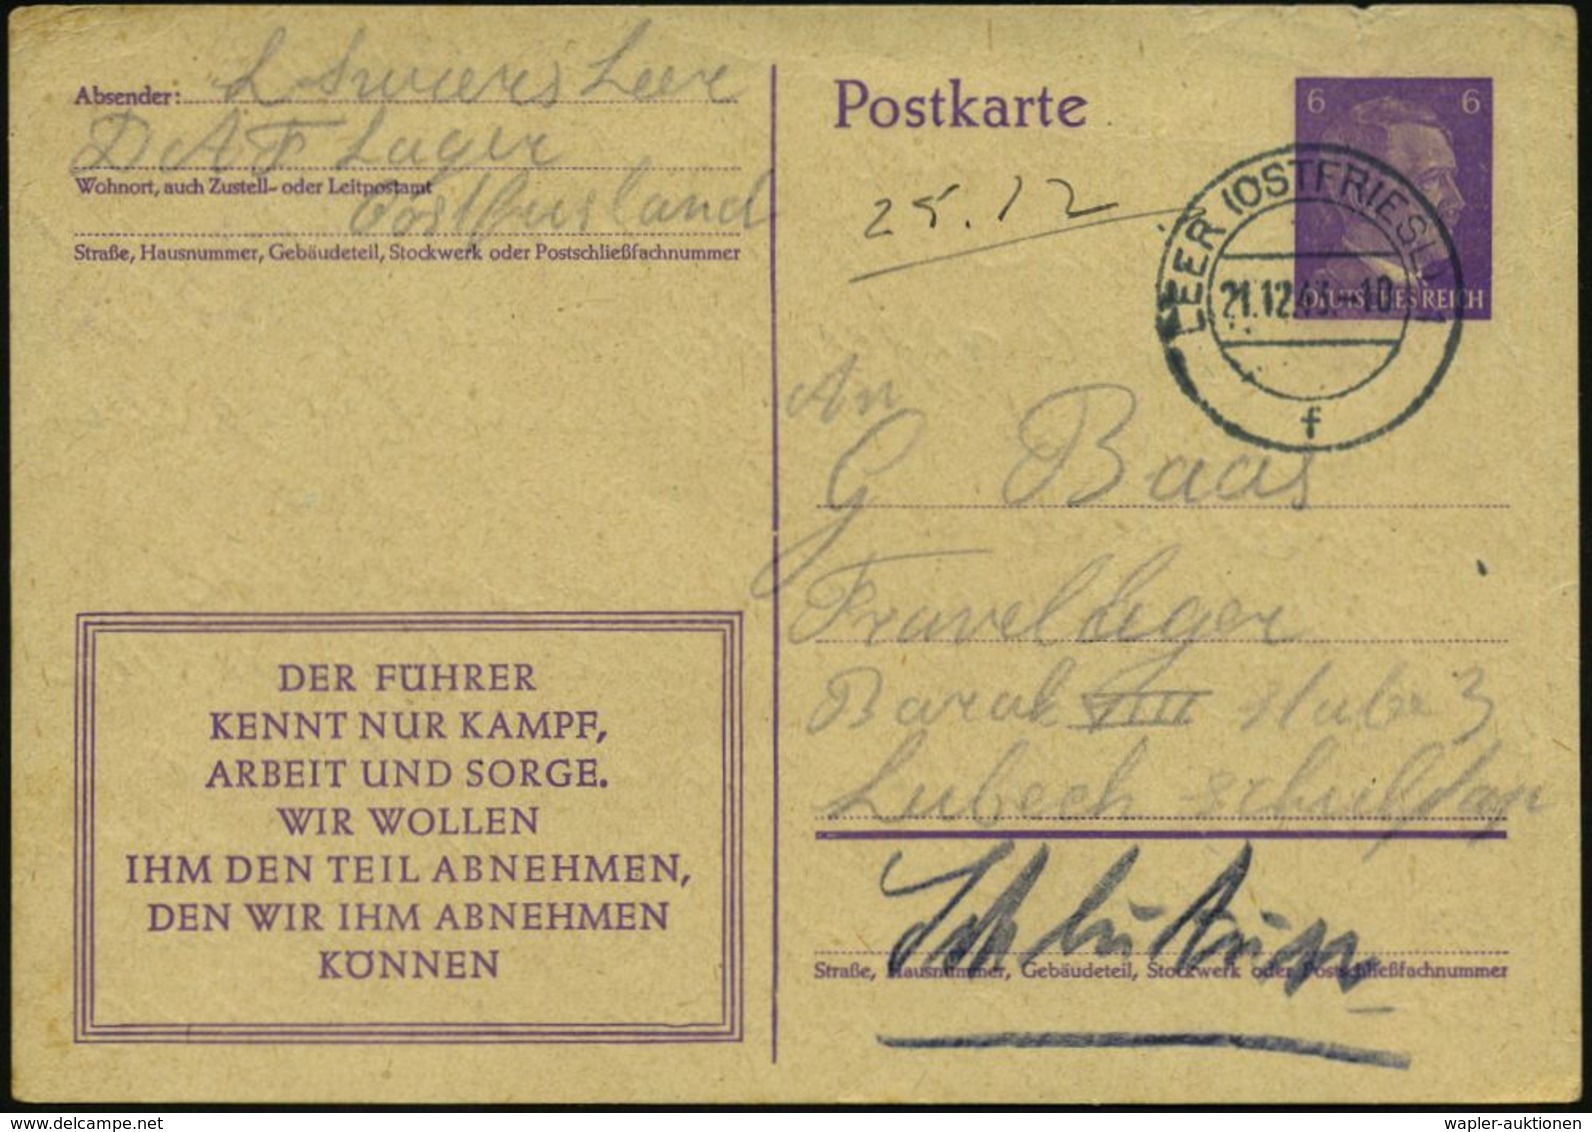 Absender: L Swiers Leer
D A F Lager
Wohnort, auch Zustell- oder Leitpostamt
Ostfriesland
Straße, Hausnummer, Gebäudeteil, Stockwerk oder Postschließfachnummer
DER FÜHRER
KENNT NUR KAMPF,
ARBEIT UND SORGE.
WIR WOLLEN
IHM DEN TEIL ABNEHMEN,
DEN WIR IHM ABNEHMEN
KÖNNEN
Postkarte
6 6
DEUTSCHES REICH
25.12
LEER (OSTFRIESL) 1
21.12.43.-10
f
An
G Baas
Travel Lager
Barak Stube 3
Lubech
Straße, Hausnummer, Gebäudeteil, Stockwerk oder Postschließfachnummer
wapler-auktionen